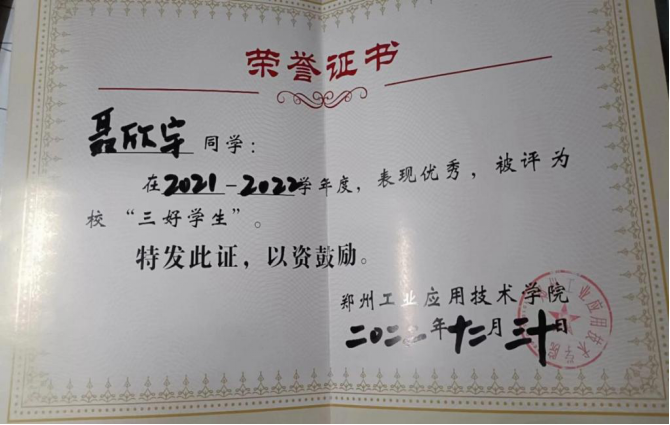 荣誉证书
聂欣宇 同学：
在2021-2022学年度，表现优秀，被评为
校“三好学生”。
特发此证，以资鼓励。
郑州工业应用技术学院
二〇二二年十二月三十日
郑州工业应用技术学院